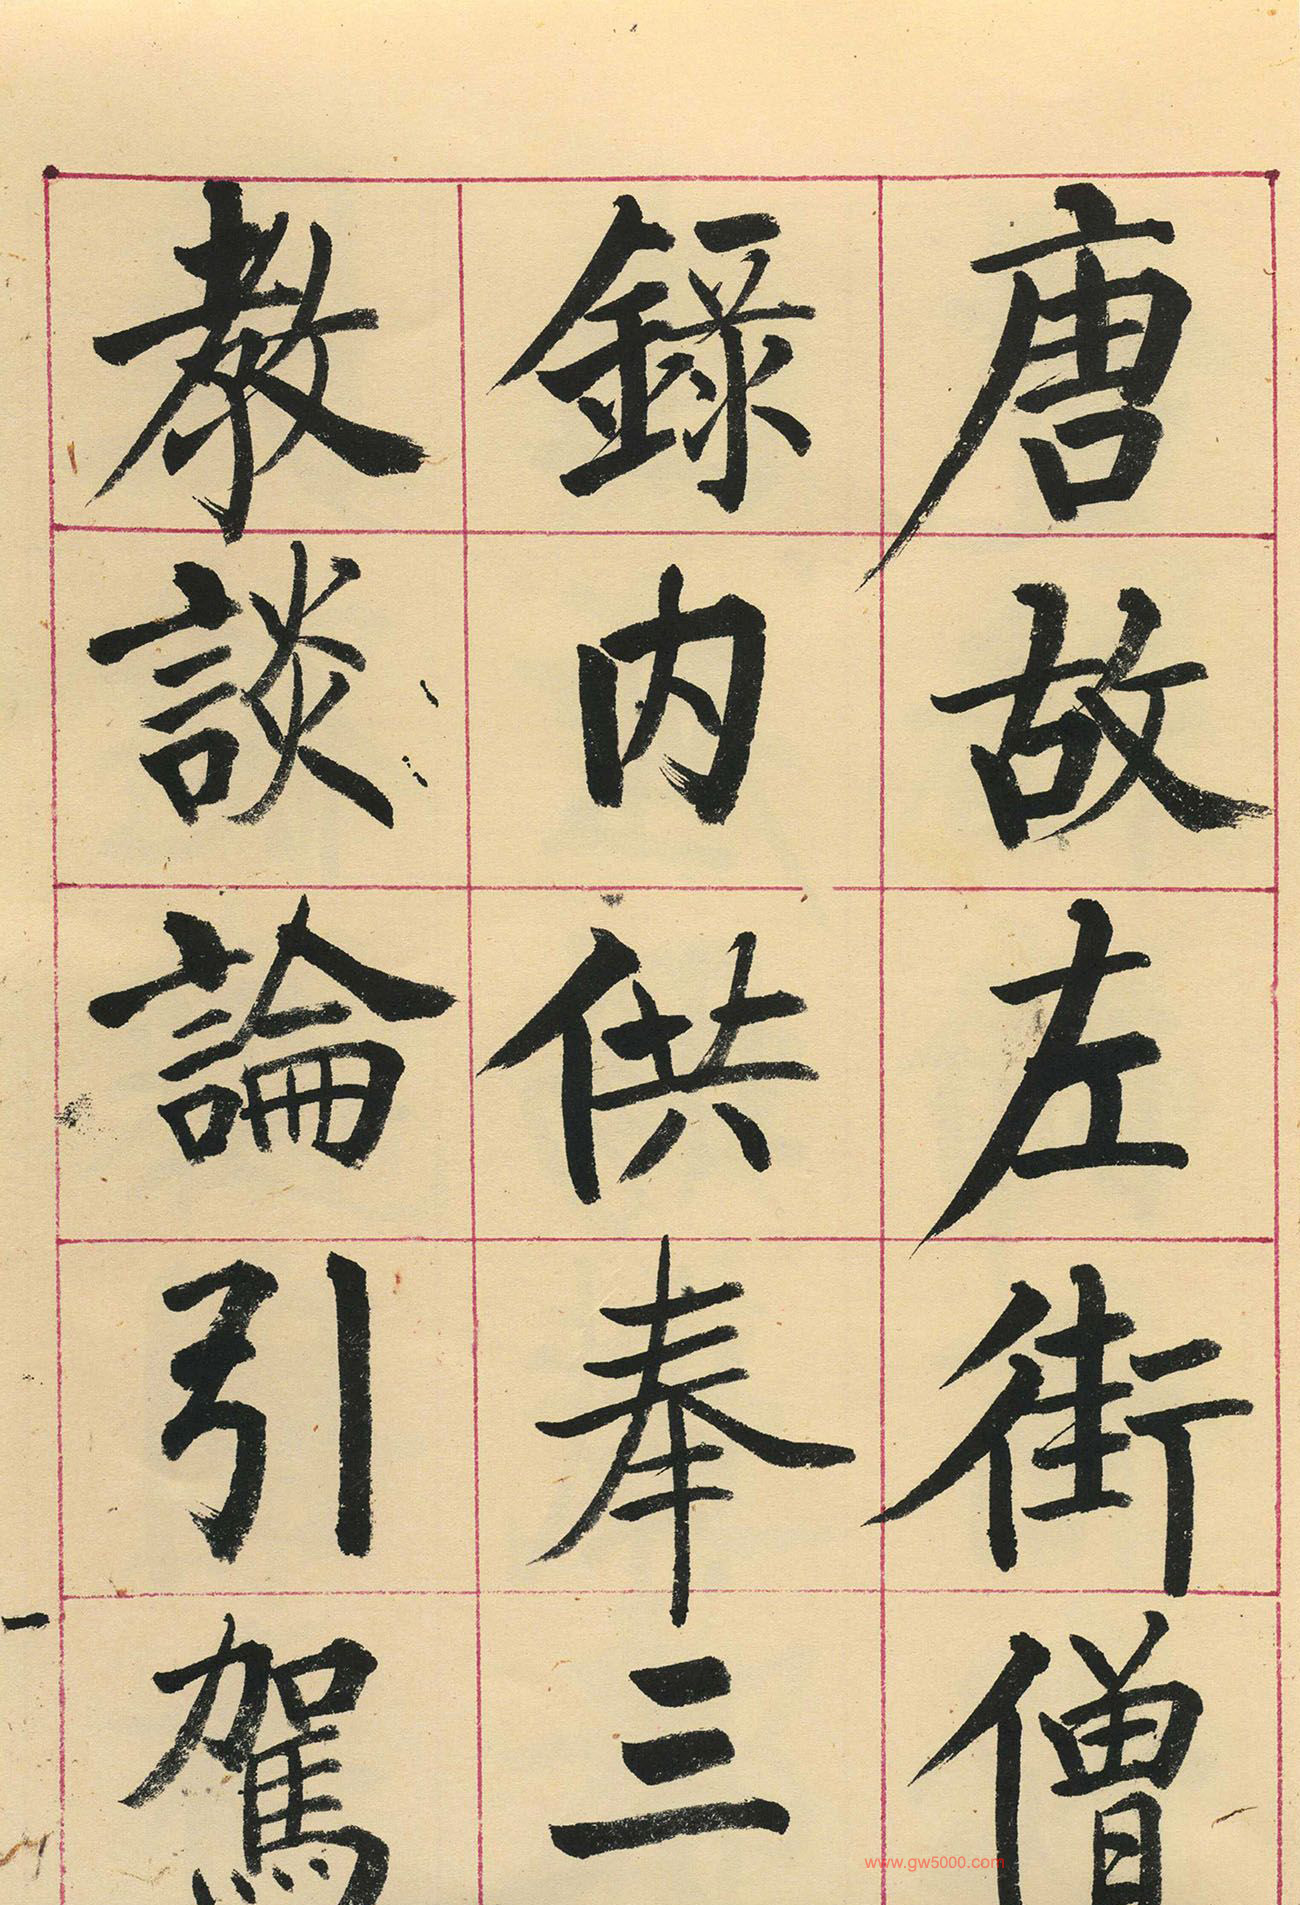 唐故左街僧
録内供奉三
教談論引駕
www.gw5000.com